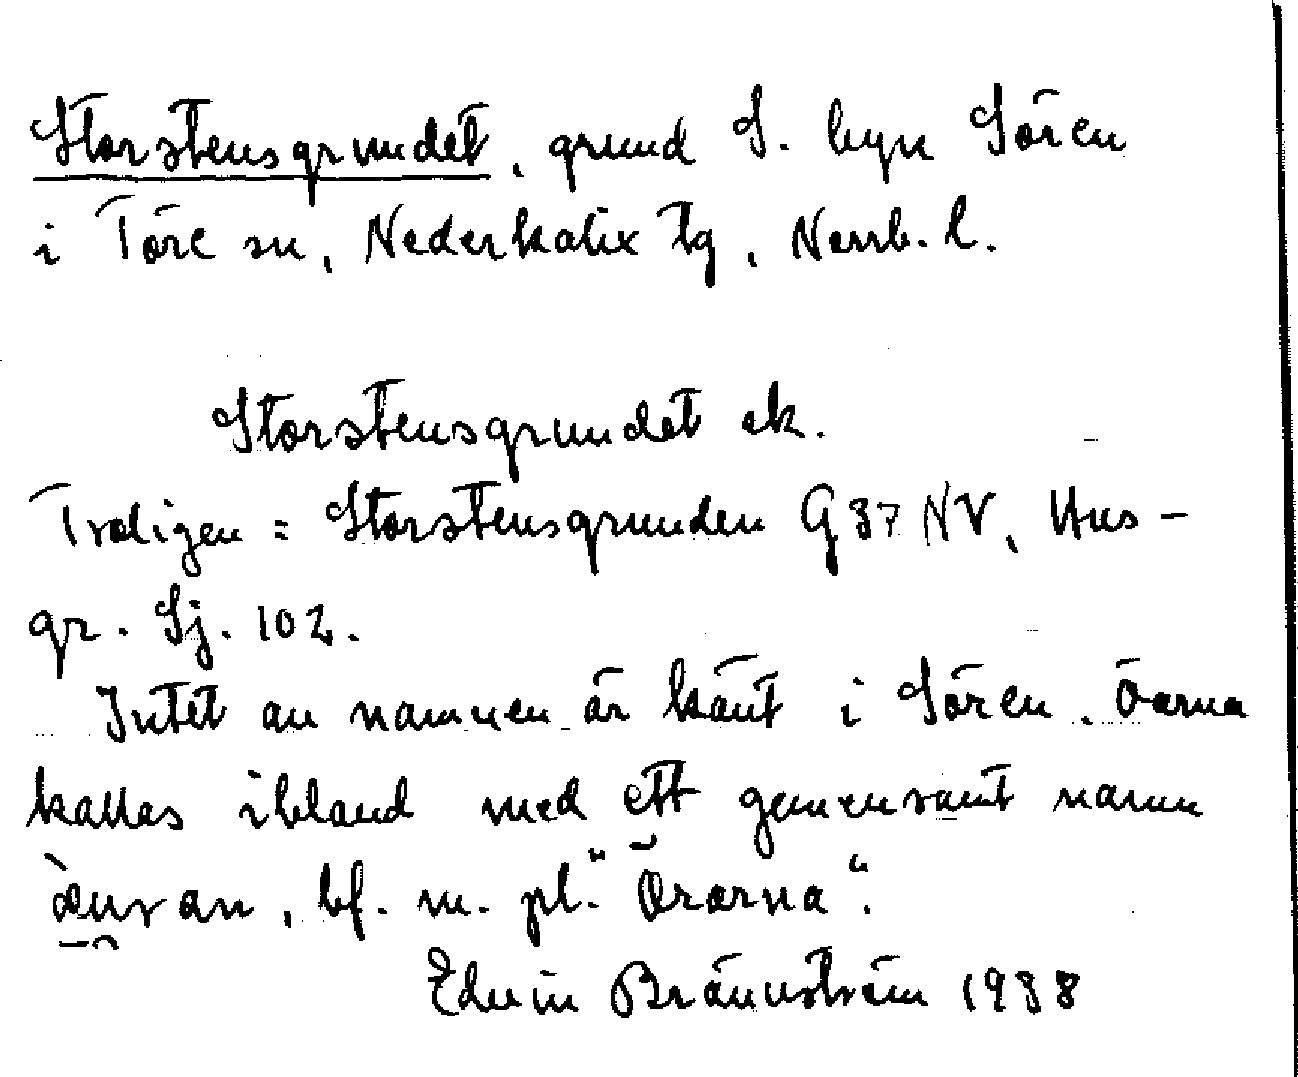 Storstensgrundet, grund S. byn Sören
i Töre sn, Nederkalix tg, Norrb. l.
Storstensgrundet ek.
Troligen = Storstensgrunden G 37 NV, Hus-
gr. Sj. 102.
Intet av namnen är känt i Sören. Öarna
kallas ibland med ett gemensamt namn
bf. m. pl. "Örarna".
Edvin Brännström 1938